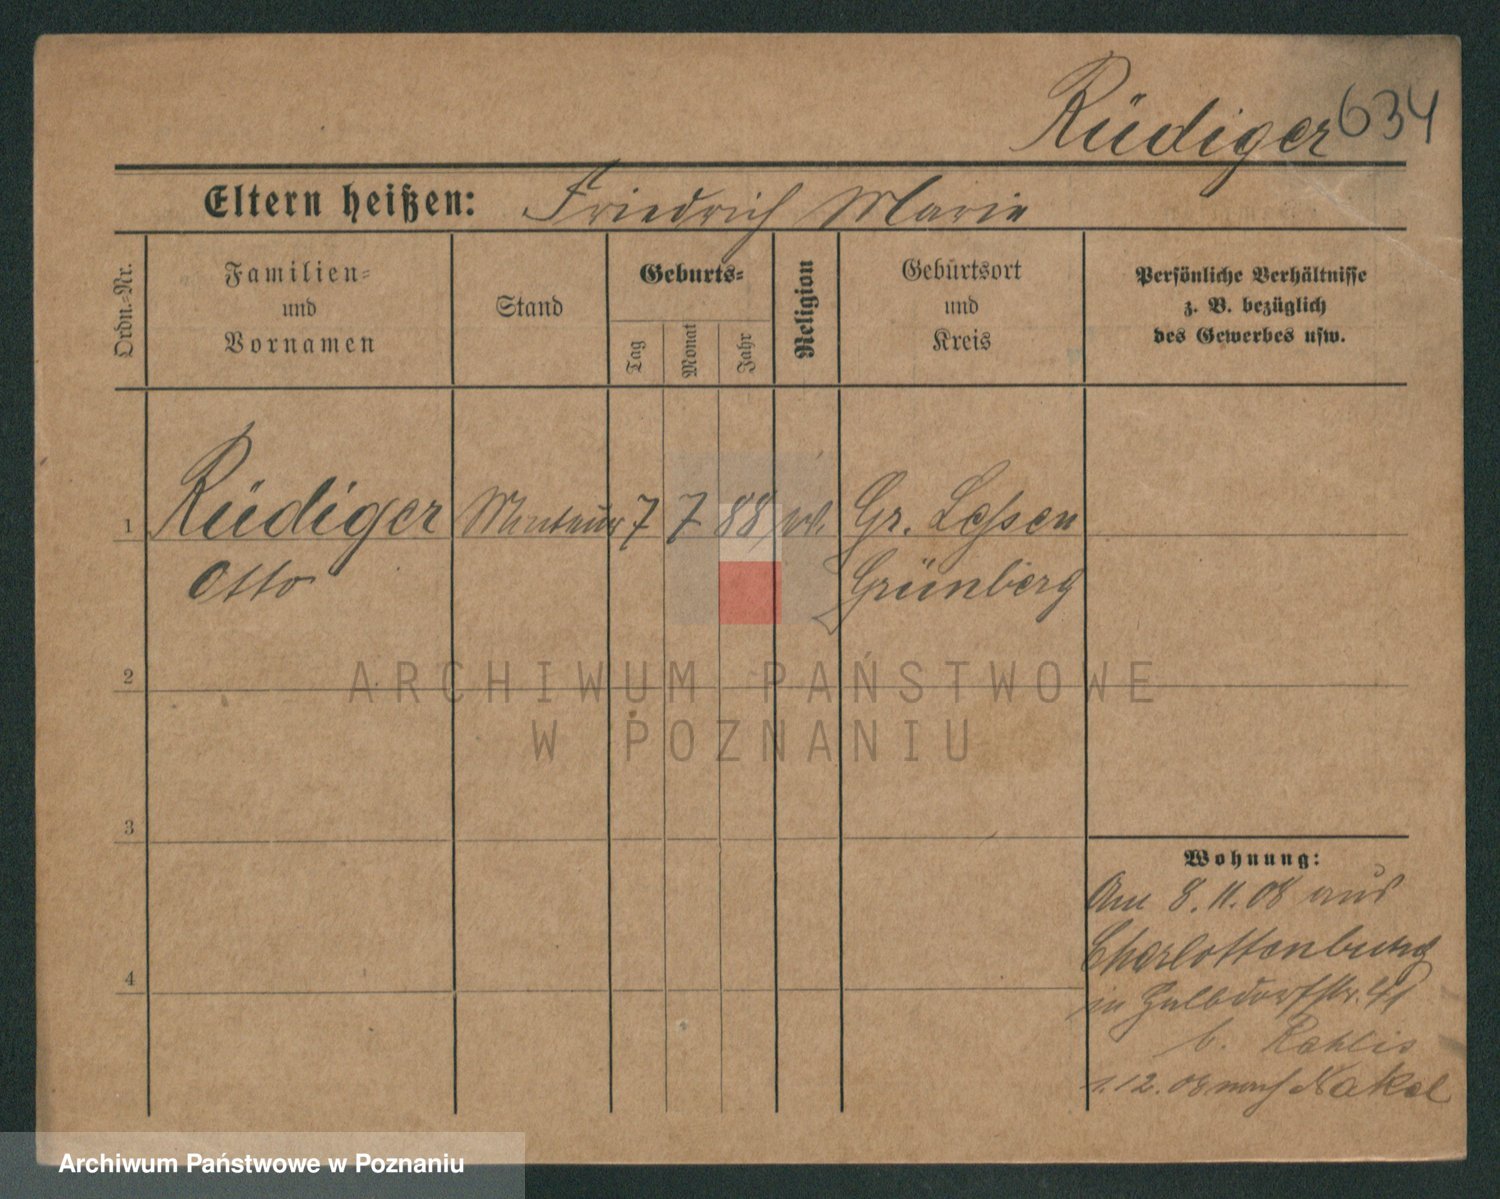 Rüdiger 634
Eltern heißen: Friedrich Marie
Ordn.-Nr.
Familien-
und
Vornamen
Stand
Geburts-
Tag
Monat
Jahr
Religion
Geburtsort
und
Kreis
Persönliche Verhältnisse
z. B. bezüglich
des Gewerbes usw.
1 Rüdiger Monteur 7 7 88 ev. Gr. Lessen
Otto Grünberg
2
3
4
Wohnung:
Am 8.11.08 aus
Charlottenburg
in Halbdorfstr. 41
b. Kahlis
1.12.08 nach Nakel
ARCHIWUM PAŃSTWOWE
W POZNANIU
Archiwum Państwowe w Poznaniu